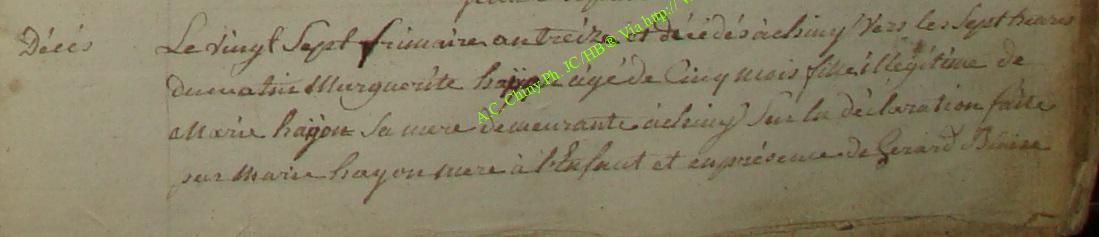 Décés
Le vingt Sept frimaire an treize est décédés à chiny vers les Sept heures
du matin Marguerite hayon agé de Cinq mois fille illégitime de
Marie hayon Sa mere demeurante à chiny Sur la déclaration faite
par Marie hayon mere à l'Enfant et en présence de Gerard
A.C. Chiny Ph. JC/HB® Via http://